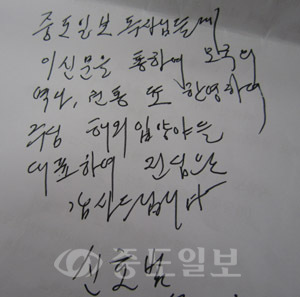 중도일보 독자님들께
이신문을 통하여 모국의
역사, 전통 또 환영하여
주심 해외입양아을
대표하여 진심으로
감사드립니다
신호범
중도일보